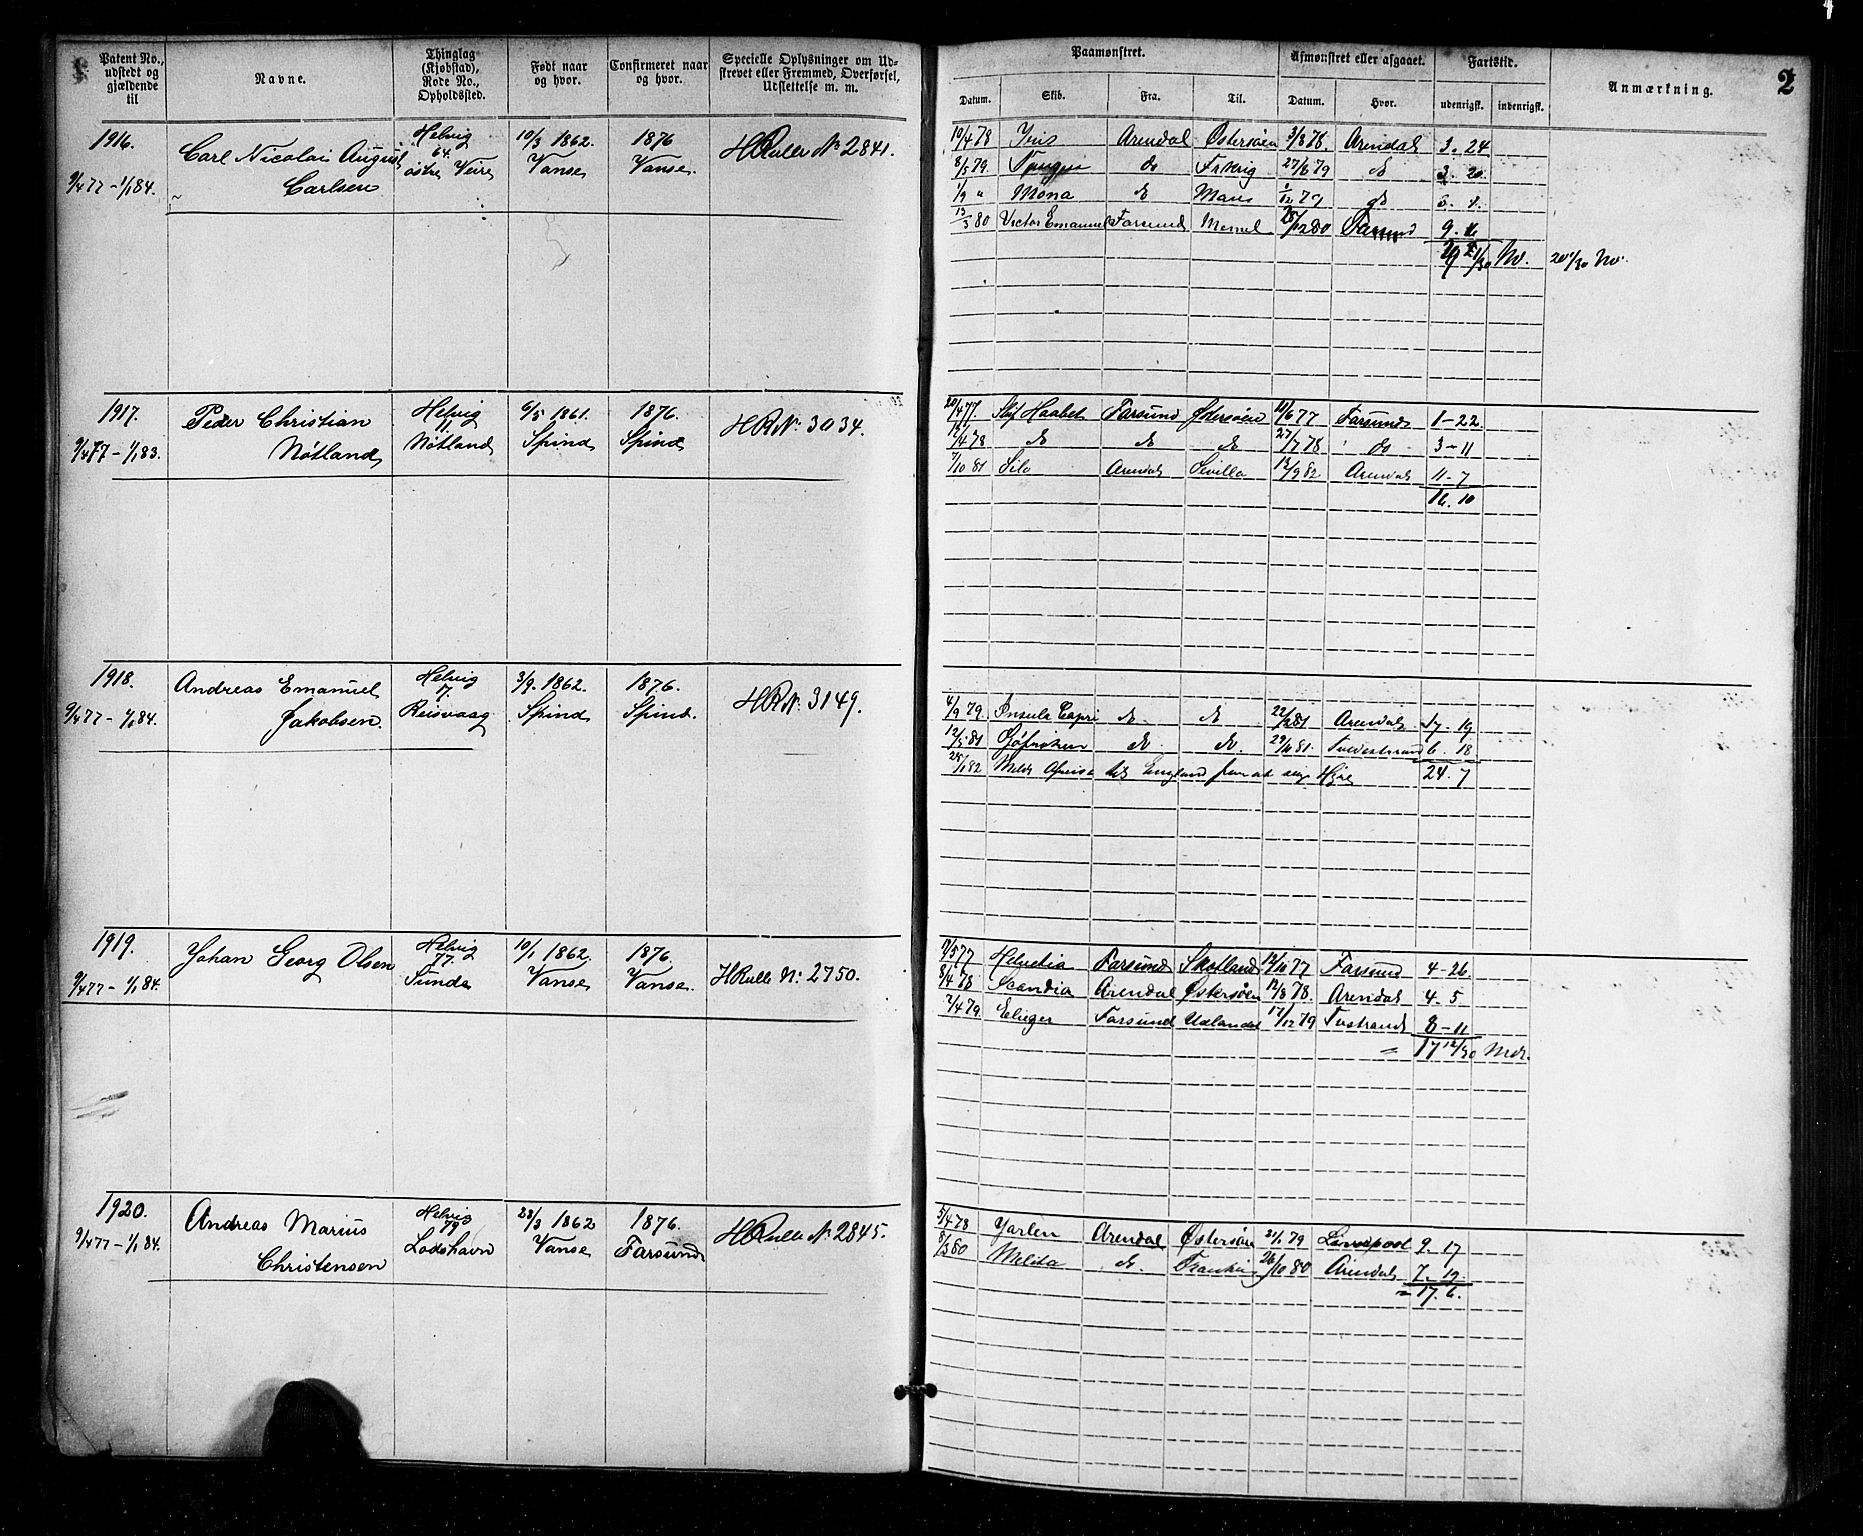 Patent No., udstedt og gjældende til | Navne. | Thinglag (Kjøbstad), Rode No., Opholdssted. | Født naar og hvor. | Confirmeret naar og hvor. | Specielle Oplysninger om Udskrevet eller Fremmed, Overførsel, Udslettelse m. m.
Paamønstret. | Afmønstret eller afgaaet. | Fartstid. | Anmærkning. | 2
Datum. | Skib. | Fra. | Til. | Datum. | Hvor. | udenrigsk. | indenrigsk.
1916. | Carl Nicolai August | Helvig | 10/3 1862. | 1876 | HRulle No 2841.
9/4 77 - 1/1 84. | Carlsen | 64. østre Veire | Vanse | Vanse.
10/4 78 | Iris | Arendal | Østersøen | 3/8 78. | Arendal | 3. 24
8/5 79 | do | 27/6 79 | do
1/9 " | Mona | do | do
13/3 80 | Victor Emanuel | Farsund | Farsund
20 1/30 Nv.
1917. | Peder Christian | Helvig | 6/5 1861. | 1876. | HRNo 3034.
9/4 77 - 1/1 83. | Nøtland | 11. Nøtland | Spind | Spind
20/4 77. | Skjf Haabet | Farsund | Østersøen | 11/6 77 | Farsund | 1-22.
4 78 | do | do | do | 27/7 78 | do | 3-11
7/10 81 | Silo | Arendal | Sevilla | 12/9 82 | Arendal | 11-7
16. 10
1918. | Andreas Emanuel | Helvig | 3/9. 1862. | 1876. | HRNo 3149.
9/4 77 - 1/1 84. | Jakobsen. | 7. Reisvaag | Spind | Spind.
4/9 79. | Insula Capri | do | do | Arendal | 17. 19
12/5 81 | do | do. | 29/11 81. | Tvedestrand | 6. 18
25/1 82 | England | Hyre | 24. 7
1919. | Johan Georg Olsen | Helvig | 10/1 1862. | 1876. | HRulle No 2750.
9/4 77 - 1/1 84. | 77. Sunde | Vanse | Vanse.
17/5 77 | Helvetia | Farsund | Skotland | 12/10 77 | Farsund | 4-26.
8/4 78 | Scandia | Arendal | Østersøen | 12/8 78. | Arendal | 4. 5
2/4 79 | Eliezer | Farsund | Udlandet | 17/12 79 | Tvstrand | 8-11
= 17 12/30 Mdr.
1920. | Andreas Marius | Helvig | 28/3 1862 | 1876. | HRulle No 2845.
9/4 77 - 1/1 84. | Christensen | 79 Lodshavn | Vanse | Farsund
5/4 78 | Jarlen | Arendal | Østersøen | 21/1 79 | Liverpool | 9. 17
8/3 80 | Melita | do. | Frankrig | 26/10 80 | Arendal | 7. 19.
= 17. 6.